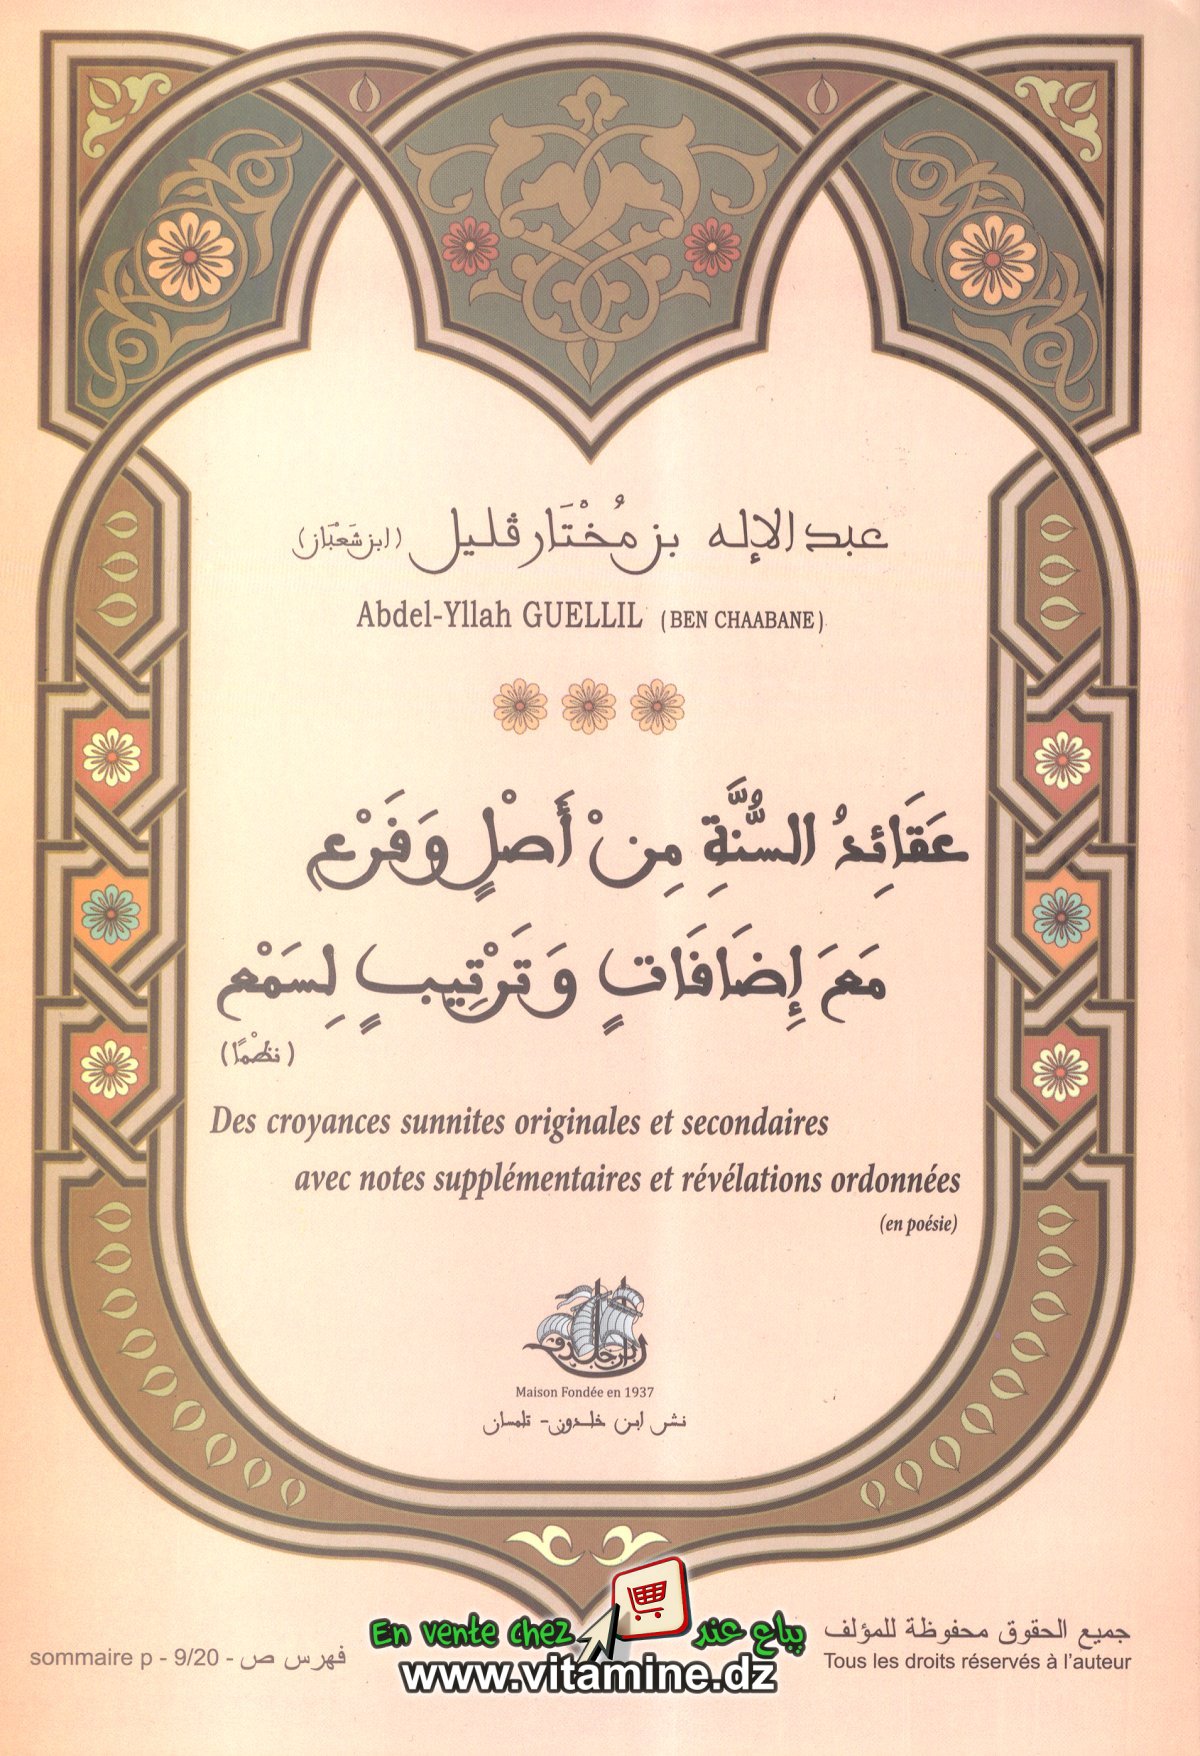 عبد الإله بن مُخْتَار ڨليل (ابن شَعْبَان)
Abdel-Yllah GUELLIL (BEN CHAABANE)
عَقَائِدُ السُّنَّةِ مِنْ أَصْلٍ وَفَرْعٍ
مَعَ إِضَافَاتٍ وَتَرْتِيبٍ لِسَمْعٍ
(نظْمًا)
Des croyances sunnites originales et secondaires
avec notes supplémentaires et révélations ordonnées
(en poésie)
ابن خلدون
Maison Fondée en 1937
نشر ابن خلدون - تلمسان
En vente chez يباع عند
www.vitamine.dz
جميع الحقوق محفوظة للمؤلف
Tous les droits réservés à l'auteur
sommaire p - 9/20 - فهرس ص